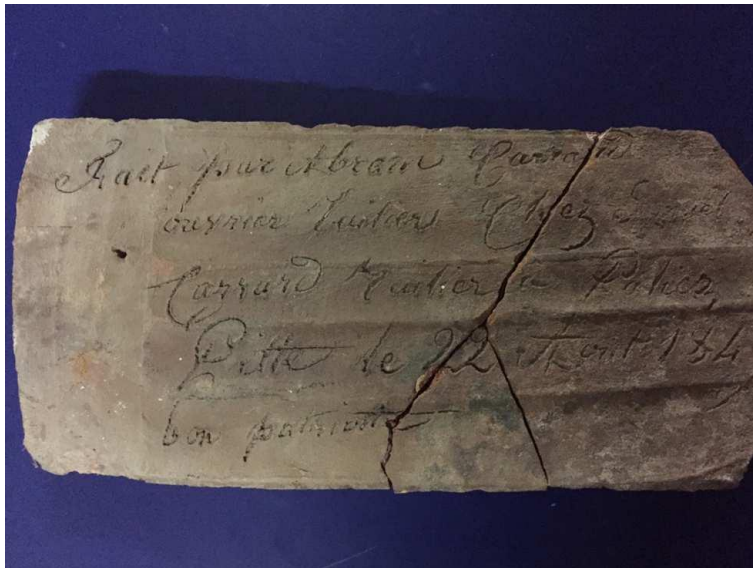 Fait par Abram Carrard
ouvrier Tuilier Chez
Carrard Tuilier a Poliez
Pitte le 22 Aout 184
bon patriotte